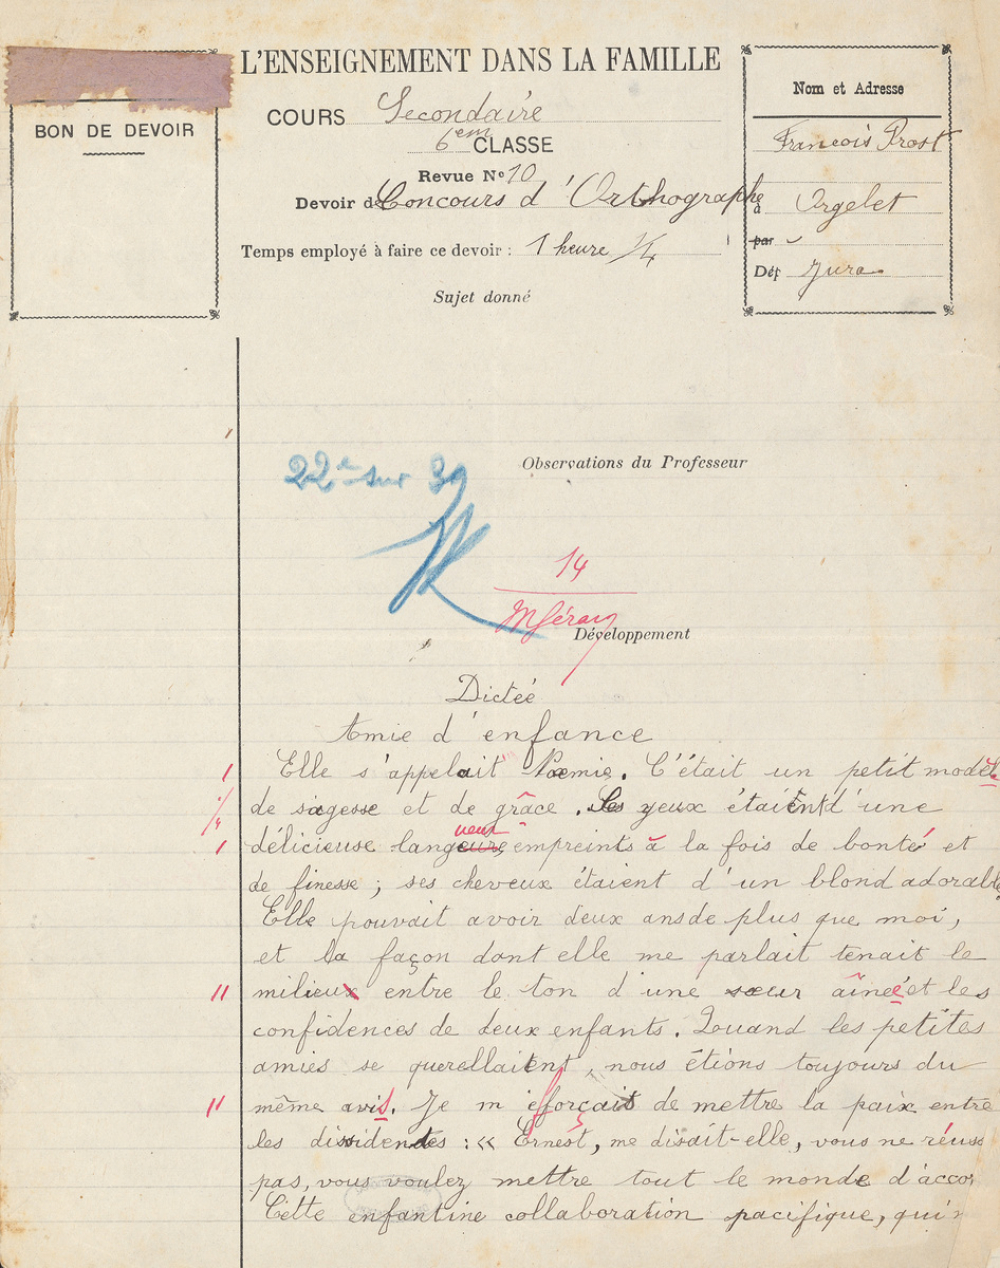 L'ENSEIGNEMENT DANS LA FAMILLE
BON DE DEVOIR
COURS Secondaire
6em CLASSE
Revue No 10
Devoir de Concours d'Orthographe
Temps employé à faire ce devoir : 1 heure 1/4
Sujet donné
Nom et Adresse
Francois Prost
à Orgelet
par
Dép Jura
22e sur 39
Observations du Professeur
14
Développement
Dicteé
Amie d'enfance
Elle s'appelait Nœmie. C'était un petit modèle
de sagesse et de grâce. Ses yeux étaient d'une
délicieuse langeure, ueur empreints à la fois de bonté et
de finesse ; ses cheveux étaient d'un blond adorable
Elle pouvait avoir deux ans de plus que moi,
et la façon dont elle me parlait tenait le
milieux entre le ton d'une sœur aîneé et les
confidences de deux enfants. Quand les petites
amies se querellaient, nous étions toujours du
même avis. Je m'efforçais de mettre la paix entre
les dissidentes : « Ernest, me disait-elle, vous ne réuss
pas, vous voulez mettre tout le monde d'accor
Cette enfantine collaboration pacifique, qui n